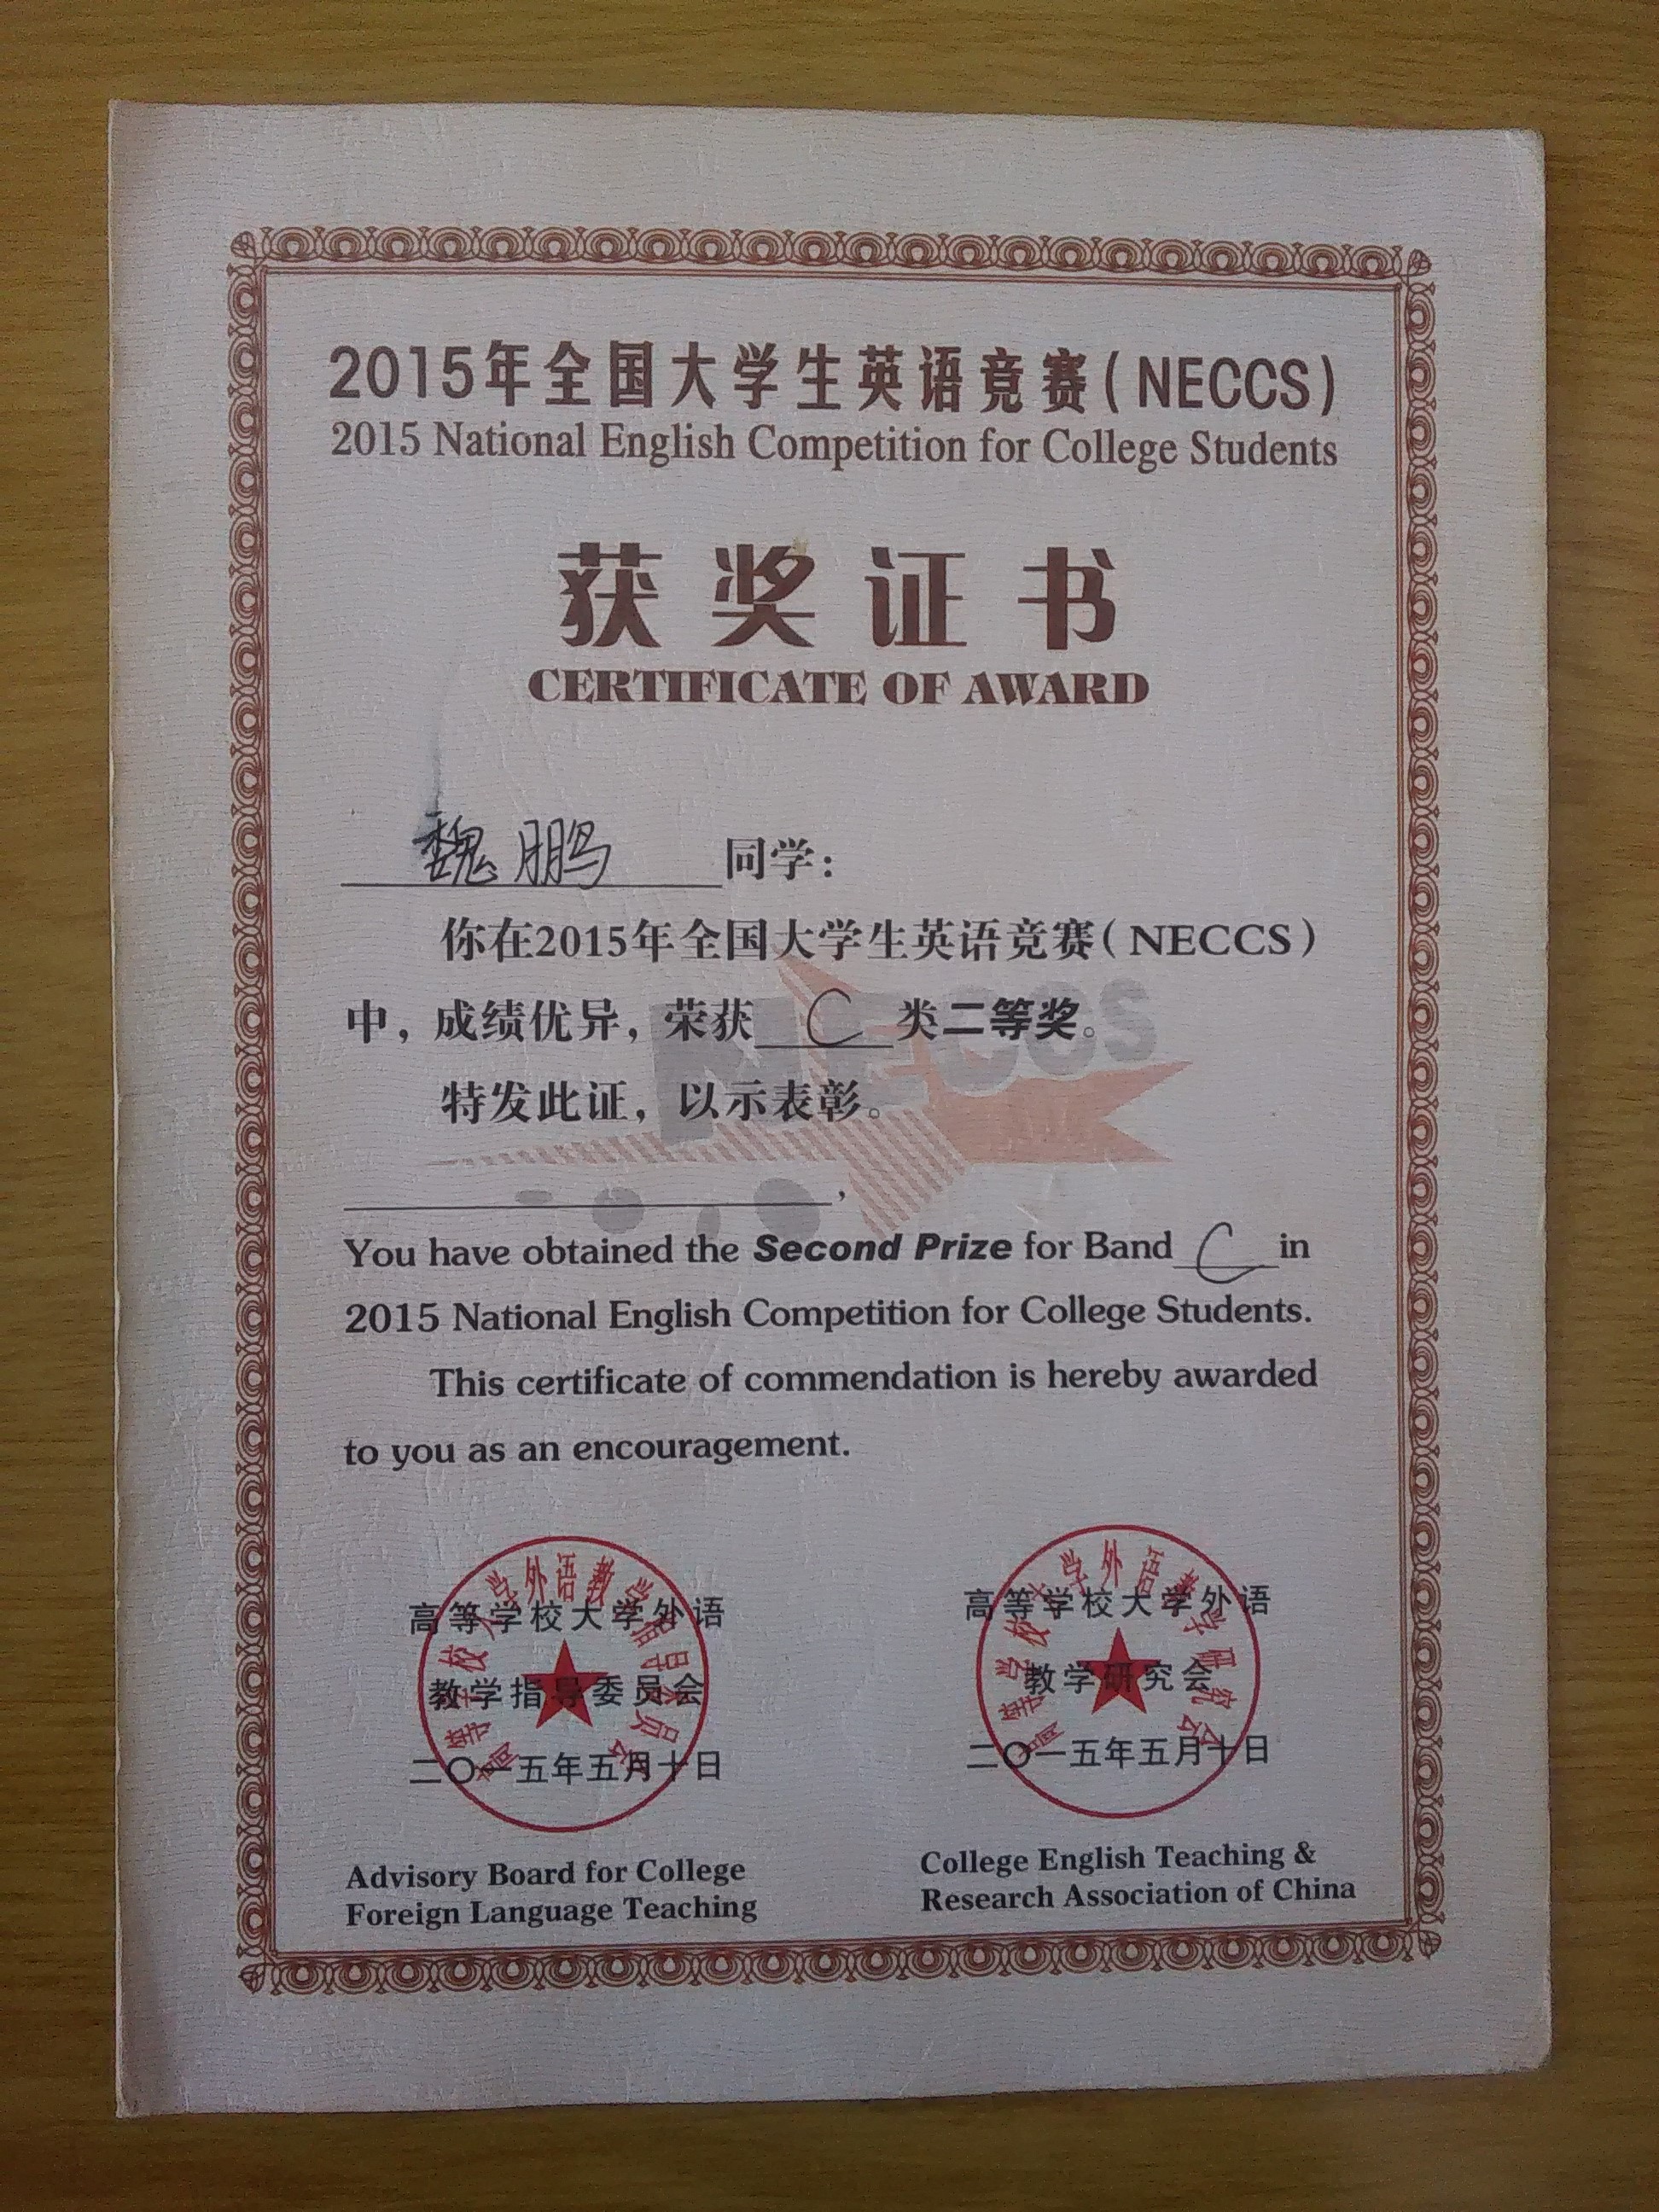 2015年全国大学生英语竞赛(NECCS)
2015 National English Competition for College Students
获奖证书
CERTIFICATE OF AWARD
魏鹏 同学:
你在2015年全国大学生英语竞赛(NECCS)
中,成绩优异,荣获 C 类二等奖。
特发此证,以示表彰。
NECCS
,
You have obtained the Second Prize for Band C in
2015 National English Competition for College Students.
This certificate of commendation is hereby awarded
to you as an encouragement.
高等学校大学外语教学指导委员会
高等学校大学外语
教学指导委员会
二〇一五年五月十日
Advisory Board for College
Foreign Language Teaching
高等学校大学外语教学研究会
高等学校大学外语
教学研究会
二〇一五年五月十日
College English Teaching &
Research Association of China